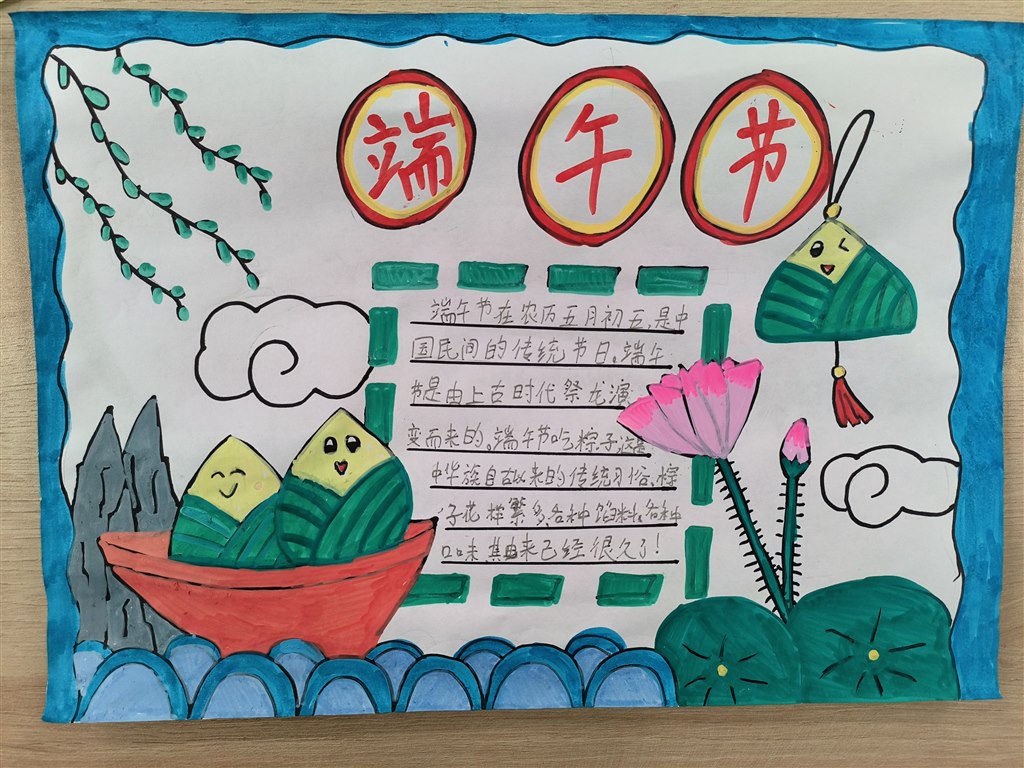 端午节
端午节在农历五月初五,是中
国民间的传统节日。端午
节是由上古时代祭龙演
变而来的。端午节吃粽子,这是
中华族自古以来的传统习俗,粽
子花样繁多,各种馅料,各种
口味,其由来已经很久了!